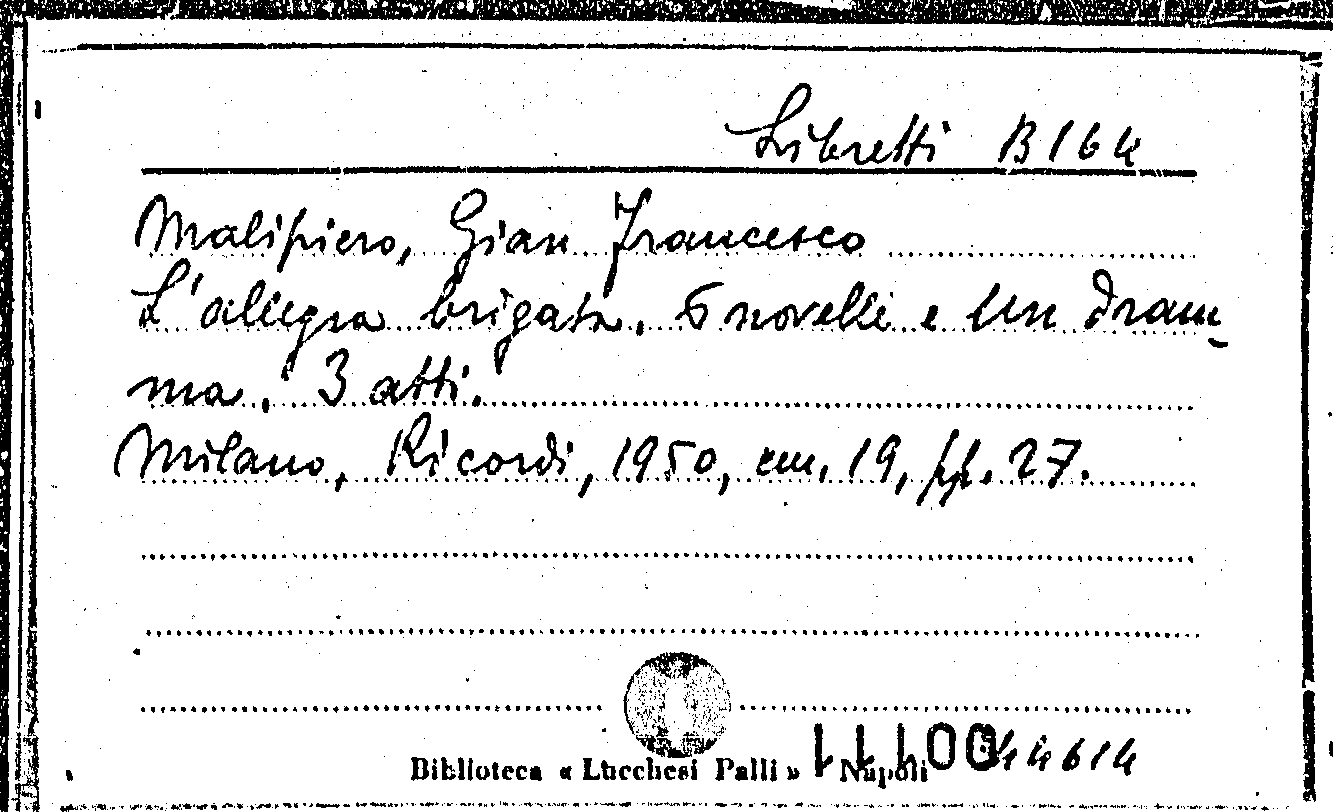 Libretti B 164
Malipiero, Gian Francesco
L'allegra brigata. 6 novelle e un dram-
ma. 3 atti.
Milano, Ricordi, 1950, cm. 19, pp. 27.
Biblioteca « Lucchesi Palli » Napoli